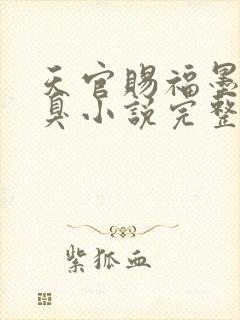 天官赐福墨
臭小说完整
紫狐血